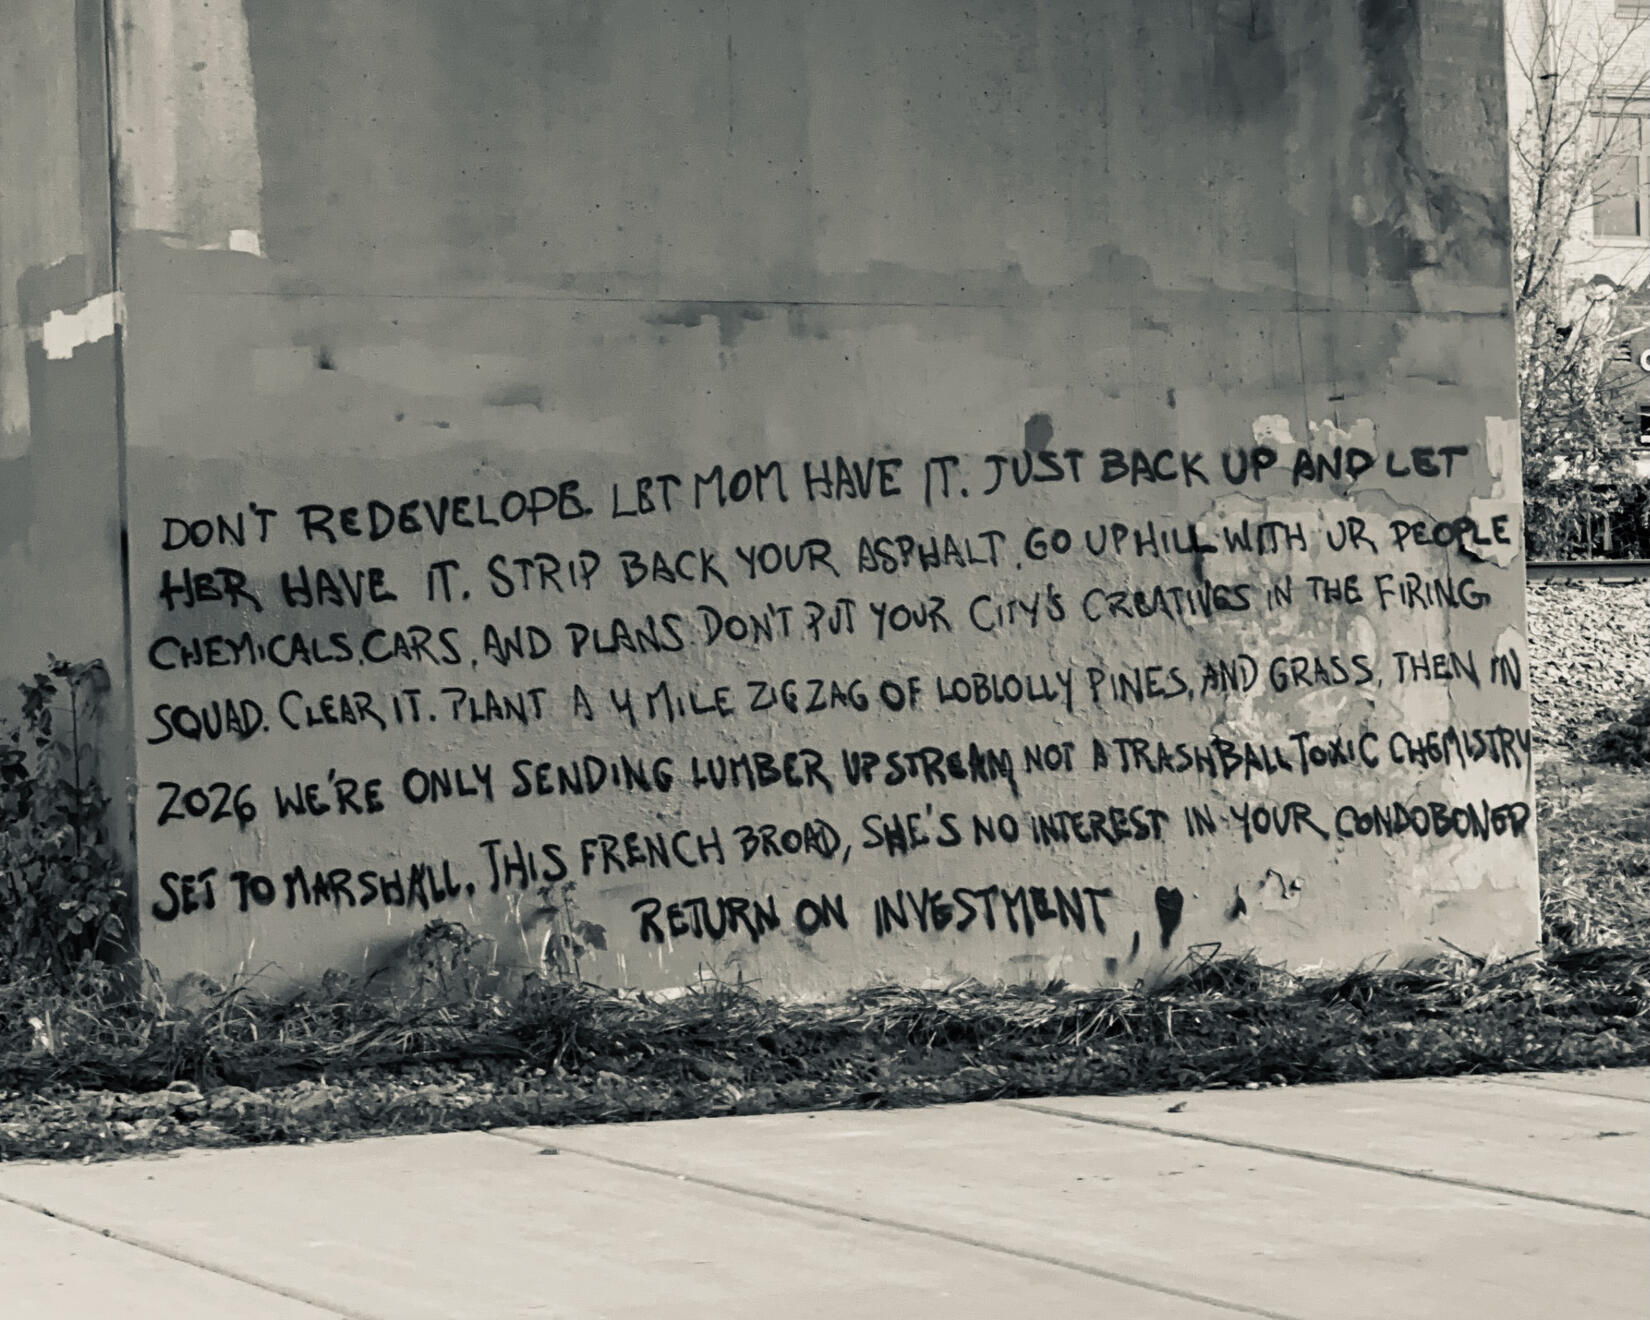 DON'T REDEVELOPE. LET MOM HAVE IT. JUST BACK UP AND LET
HER HAVE IT. STRIP BACK YOUR ASPHALT, GO UPHILL WITH UR PEOPLE
CHEMICALS, CARS, AND PLANS. DON'T PUT YOUR CITY'S CREATIVES IN THE FIRING
SQUAD. CLEAR IT. PLANT A 4 MILE ZIGZAG OF LOBLOLLY PINES, AND GRASS, THEN IN
2026 WE'RE ONLY SENDING LUMBER UPSTREAM NOT A TRASHBALL TOXIC CHEMISTRY
SET TO MARSHALL. THIS FRENCH BROAD, SHE'S NO INTEREST IN YOUR CONDOBONER
RETURN ON INVESTMENT, ♥